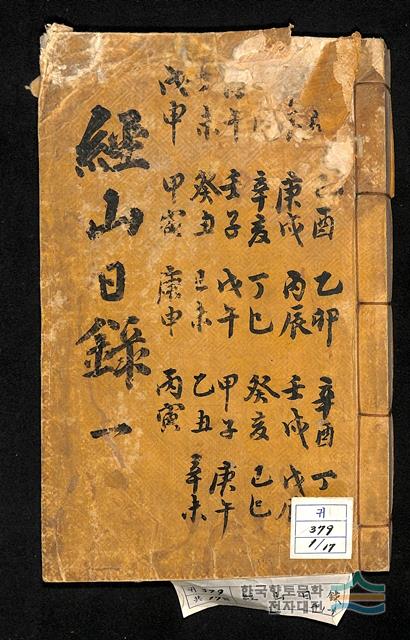 酉 乙卯 辛酉 丁
庚戌 丙辰 壬戌 戊
辛亥 丁巳 癸亥 己巳
午 壬子 戊午 甲子 庚午
未 癸丑 己未 乙丑 辛未
戊申 甲寅 庚申 丙寅
經山日錄 一
귀
379
1/17
귀 379
한국향토문화
전자대전